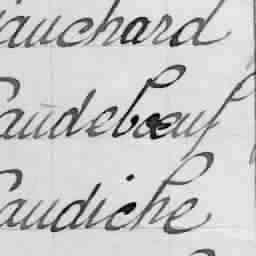 auchard
audebœuf
audiche